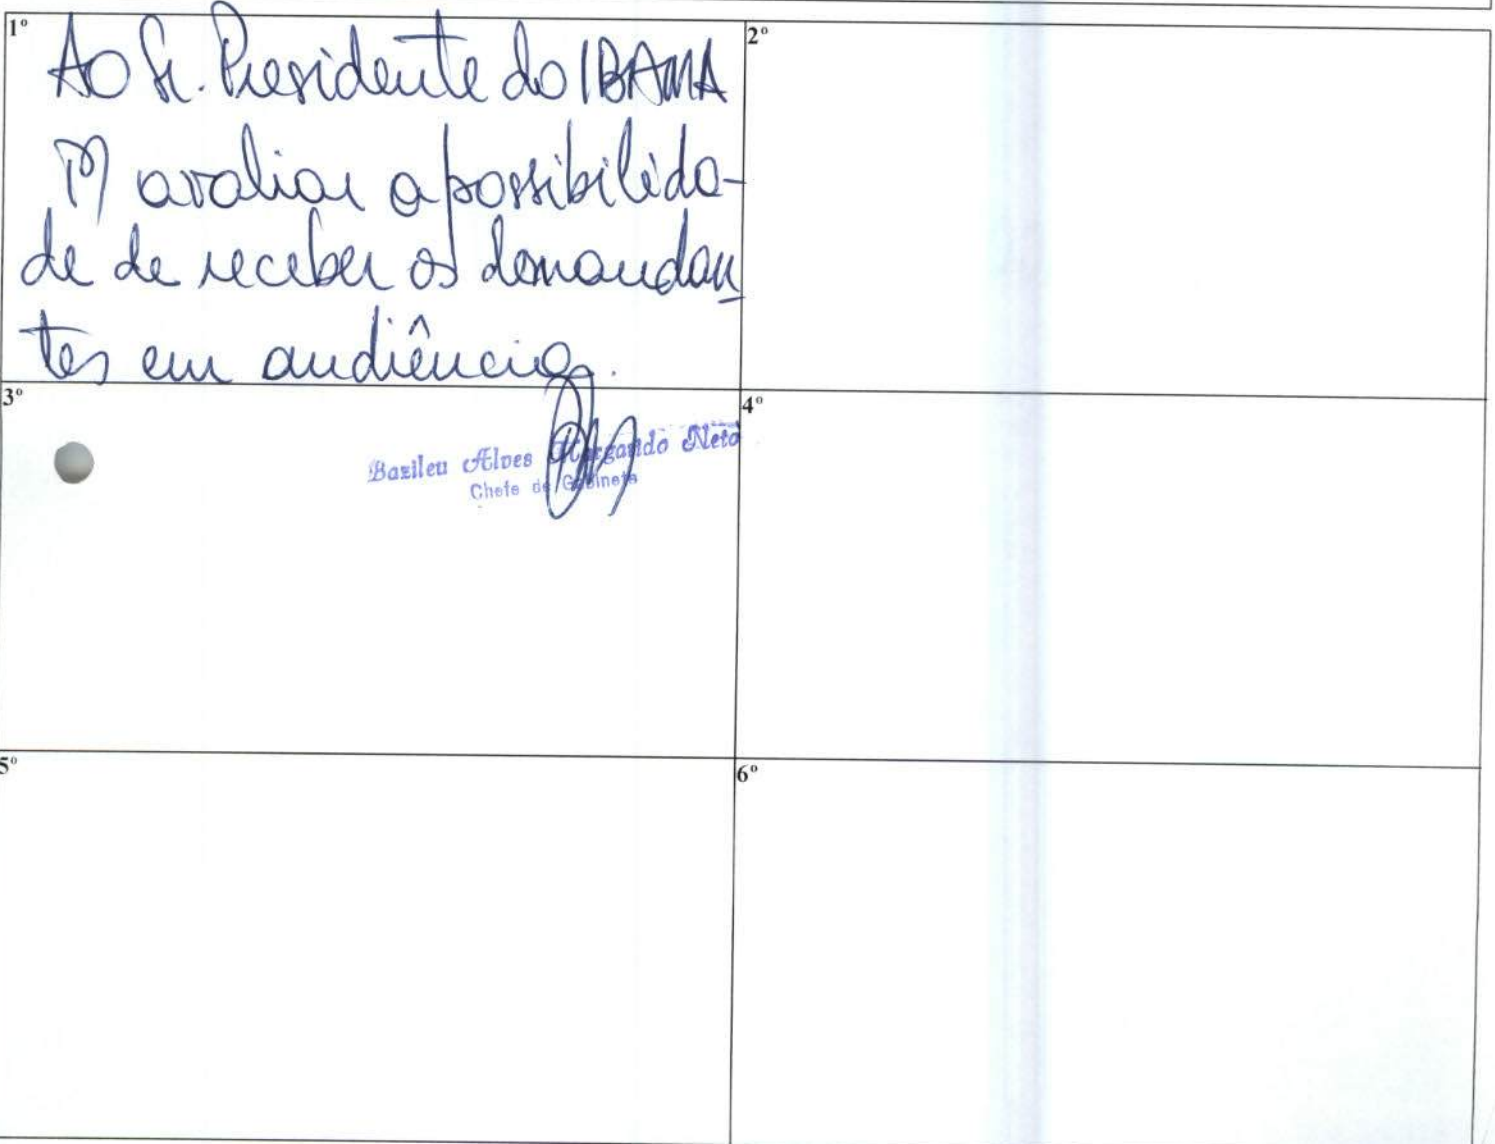 1º
Ao Sr. Presidente do IBAMA
P/ avaliar a possibilida-
de de receber os demandan
tes em audiência.
2º
3º
Bazileu Alves Margarido Neto
Chefe de Gabinete
4º
5º
6º